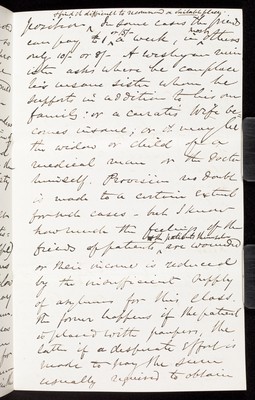 & find it difficult to recommend a suitable place.
position. In some cases the friends
can pay £1 or 15/- a week, in others
only 10/- or 8/-. A Wesleyan minister
asks where he can place
his insane sister whom he
supports in addition to his own
family: or a curate's wife be-
comes insane; or it may be
the widow or child of a
medical man or the Doctor
himself. Provision no doubt
is made to a certain extent
for such cases - but I know
how much the feelings of the
friends of patients & the patients themselves are wounded
or their income is reduced
by the insufficient supply
of asylums for this class.
The former happens if the patient
is placed with paupers, the
latter if a desperate effort is
made to pay the sum
usually required to obtain